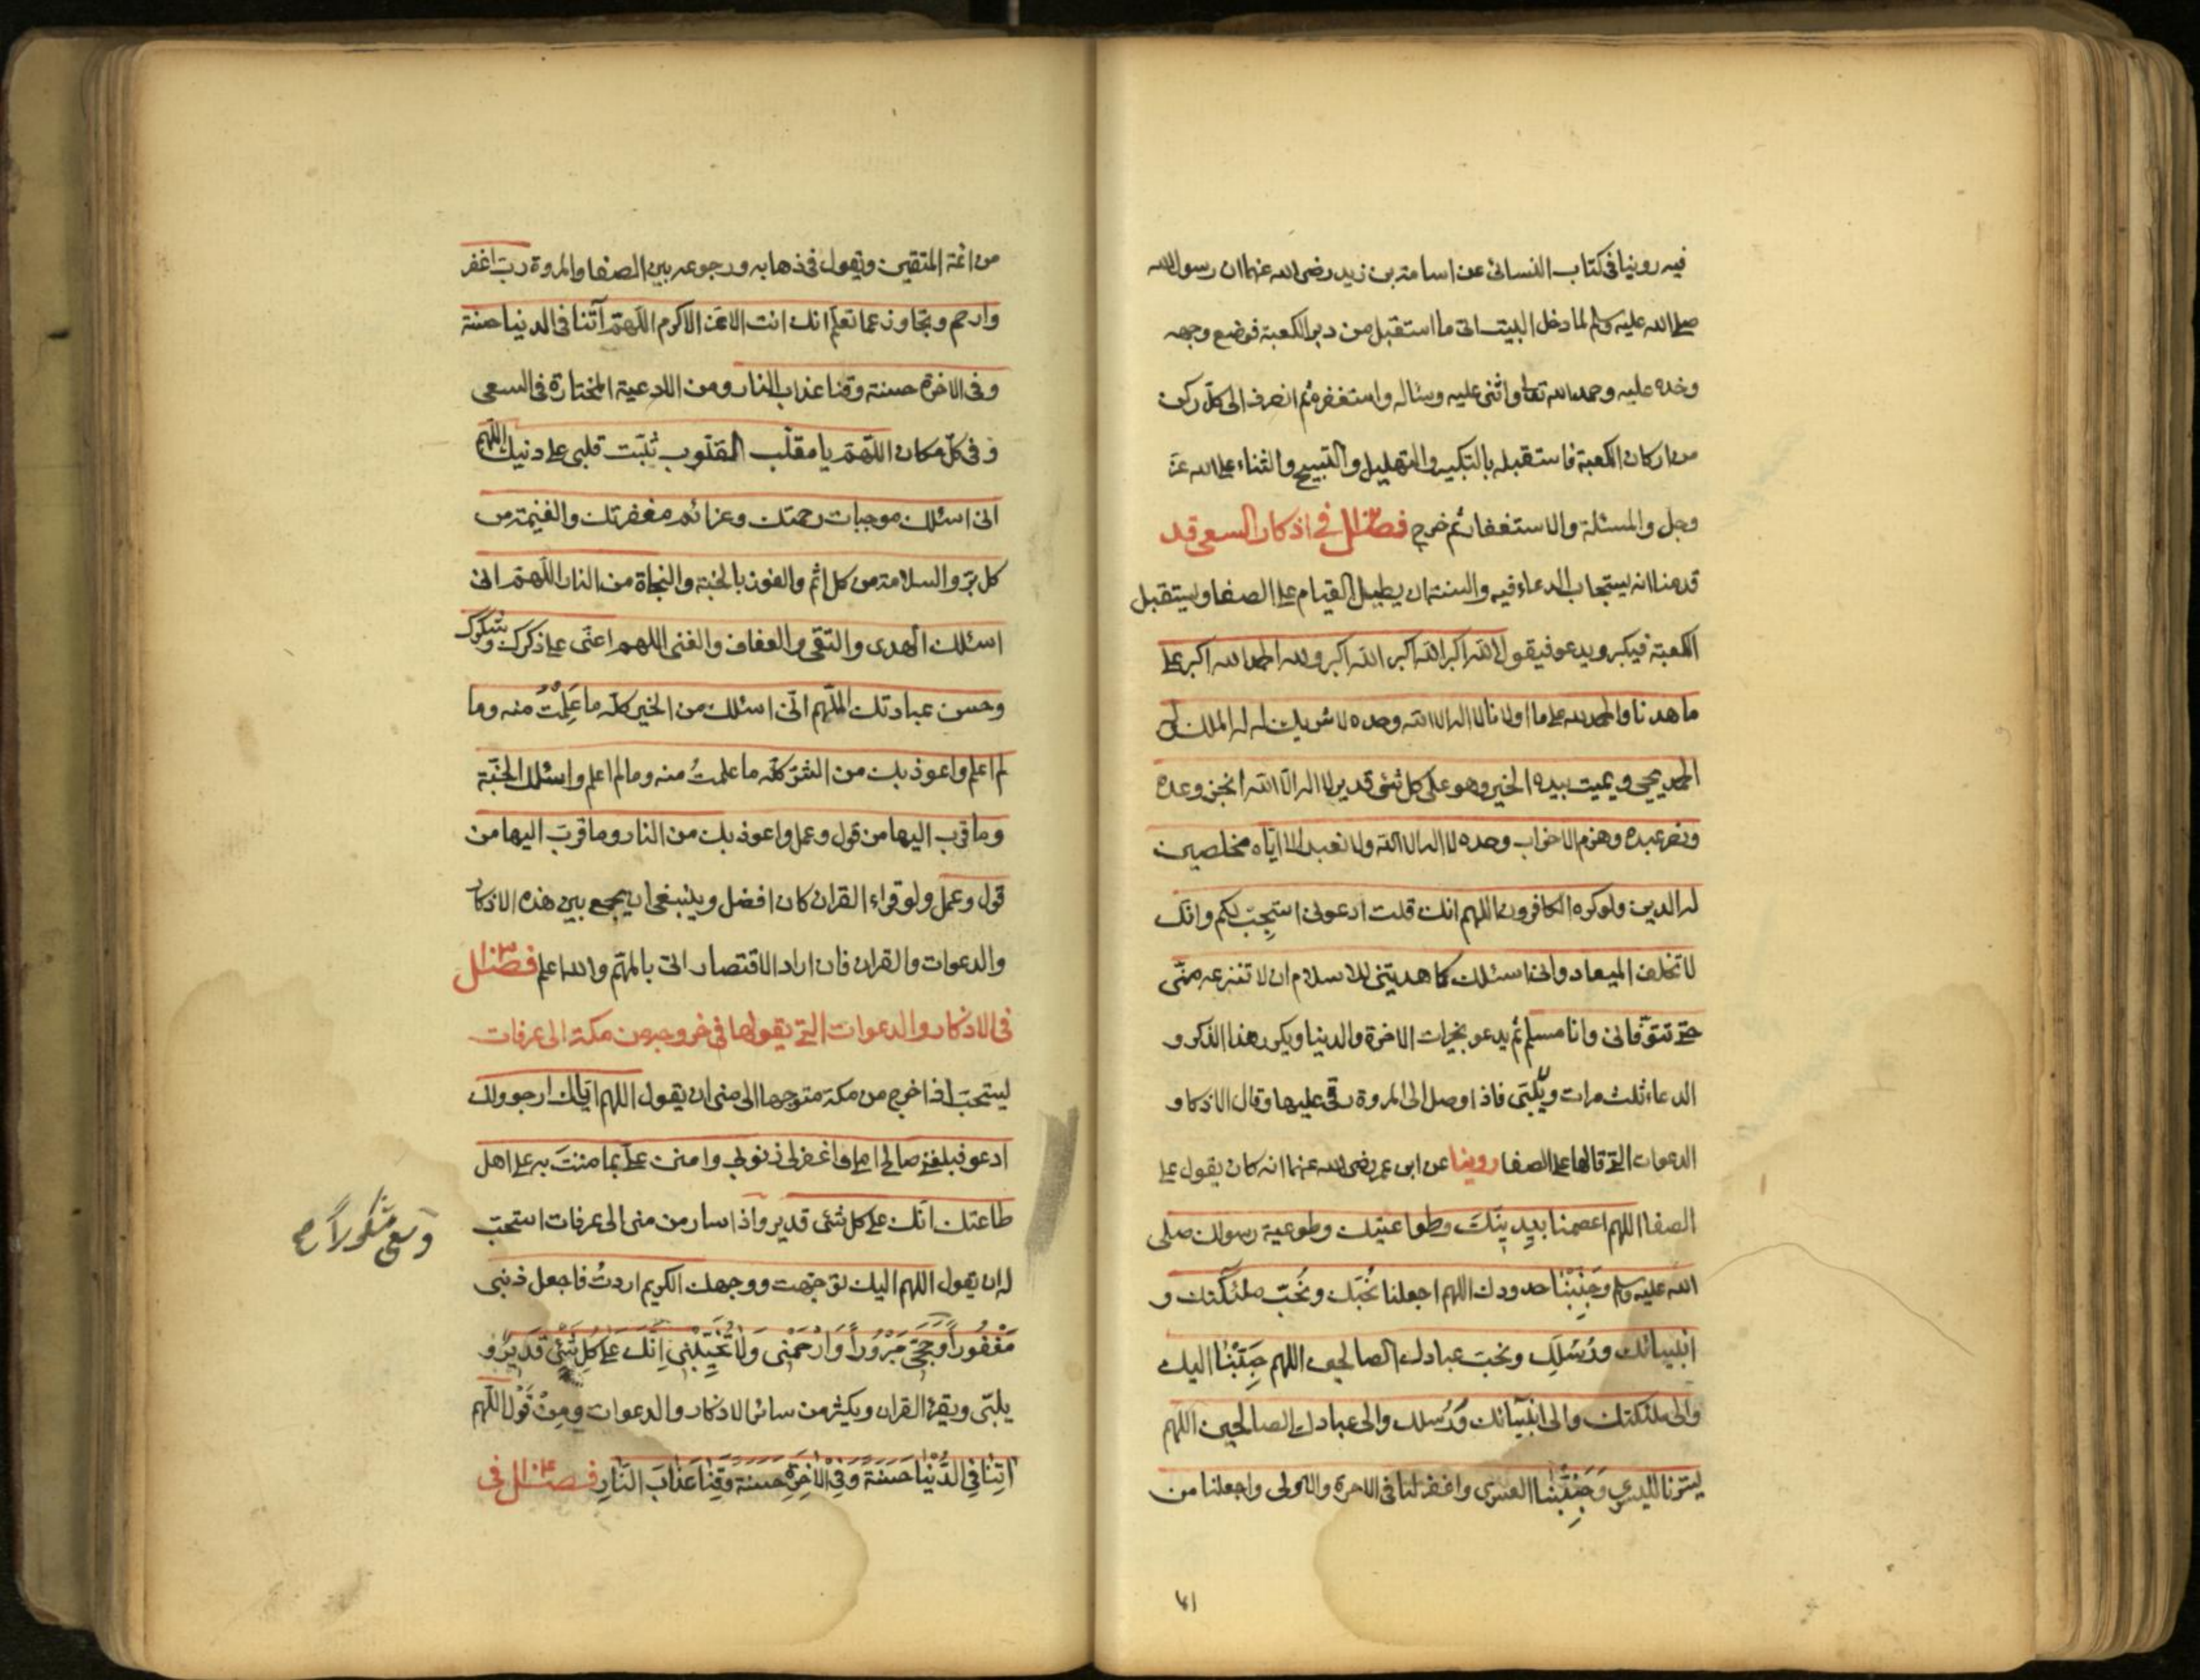 فيه روينا فى كتاب النسائى عن اسامة بن زيد رضى الله عنهما ان رسول الله
صلى الله عليه وسلم لما دخل البيت اتى ما استقبل من دبر الكعبة فوضع وجهه
وخده عليه وحمد الله تعالى واثنى عليه وسئاله واستغفره ثم انصرف الى كل ركن
من اركان الكعبة فاستقبله بالتكبير والتهليل والتسبيح والثناء على الله عز
وجل والمسئلة والاستغفار ثم خرج فصل فى اذكار السعى قد
قدمنا انه يستجاب الدعاء فيه والسنة ان يطيل القيام على الصفا ويستقبل
الكعبة فيكبر ويدعو فيقول الله اكبر الله اكبر الله اكبر ولله الحمد الله اكبر على
ما هدنا والحمد لله على ما اولانا لا اله الا الله وحده لا شريك له له الملك وله
الحمد يحيى ويميت بيده الخير وهو على كل شئ قدير لا اله الا الله انجز وعده
ونصر عبده وهزم الاحزاب وحده لا اله الا الله ولا نعبد الا اياه مخلصين
له الدين ولو كره الكافرون اللهم انك قلت ادعونى استجب لكم وانك
لا تخلف الميعاد وانى اسئلك كما هديتنى للاسلام ان لا تنزعه منى
حتى تتوفانى وانا مسلم ثم يدعو بخيرات الاخرة والدنيا ويكرر هذا الذكر و
الدعاء ثلث مرات ويلبى فاذا وصل الى المروة رقى عليها وقال الاذكار و
الدعوات التى قالها على الصفا روينا عن ابن عمر رضى الله عنهما انه كان يقول على
الصفا اللهم اعصمنا بدينك وطواعيتك وطوعية رسولك صلى
الله عليه وسلم وجنبنا حدودك اللهم اجعلنا نحبك ونحب ملئكتك و
انبيائك ورسلك ونحب عبادك الصالحين اللهم حببنا اليك
والى ملئكتك والى انبيائك ورسلك والى عبادك الصالحين اللهم
يسرنا لليسرى وجنبنا العسرى واغفر لنا فى الاخرة والاولى واجعلنا من
من ائمة المتقين ويقول فى ذهابه ورجوعه بين الصفا والمروة رب اغفر
وارحم وتجاوز عما تعلم انك انت الاعز الاكرم اللهم آتنا فى الدنيا حسنة
وفى الاخرة حسنة وقنا عذاب النار ومن الادعية المختارة فى السعى
وفى كل مكان اللهم يا مقلب القلوب ثبت قلبى على دينك اللهم
انى اسئلك موجبات رحمتك وعزائم مغفرتك والغنيمة من
كل بر والسلامة من كل اثم والفوز بالجنة والنجاة من النار اللهم انى
اسئلك الهدى والتقى والعفاف والغنى اللهم اعنى على ذكرك وشكرك
وحسن عبادتك اللهم انى اسئلك من الخير كله ما علمت منه وما
لم اعلم واعوذ بك من الشر كله ما علمت منه وما لم اعلم واسئلك الجنة
وما قرب اليها من قول وعمل واعوذ بك من النار وما قرب اليها من
قول وعمل ولو قراء القران كان افضل وينبغى ان يجمع بين هذه الاذكار
والدعوات والقران فان اراد الاقتصار اتى بالمهم والله اعلم فصل
فى الاذكار والدعوات التى يقولها فى خروجه من مكة الى عرفات
يستحب اذا خرج من مكة متوجها الى منى ان يقول اللهم اياك ارجو ولك
ادعو فبلغنى صالح املى واغفر لى ذنوبى وامنن على بما مننت به على اهل
طاعتك انك على كل شئ قدير واذا سار من منى الى عرفات استحب
له ان يقول اللهم اليك توجهت ووجهك الكريم اردت فاجعل ذنبى
مَغْفُورًا وَحَجّى مَبْرُورًا وَارْحَمْنِى وَلَا تُخَيِّبْنِى اِنَّكَ عَلَى كُلِّ شَئْ قَدِيرٌ و
يلبى ويقرء القران ويكثر من سائر الاذكار والدعوات ومن قول اللهم
اتِنَا فِى الدُّنْيَا حَسَنَة وَفِى الْاخِرَةِ حسنة وَقِنَا عَذَابَ النَّارِ فصل فى
وسعى مشكورا صح